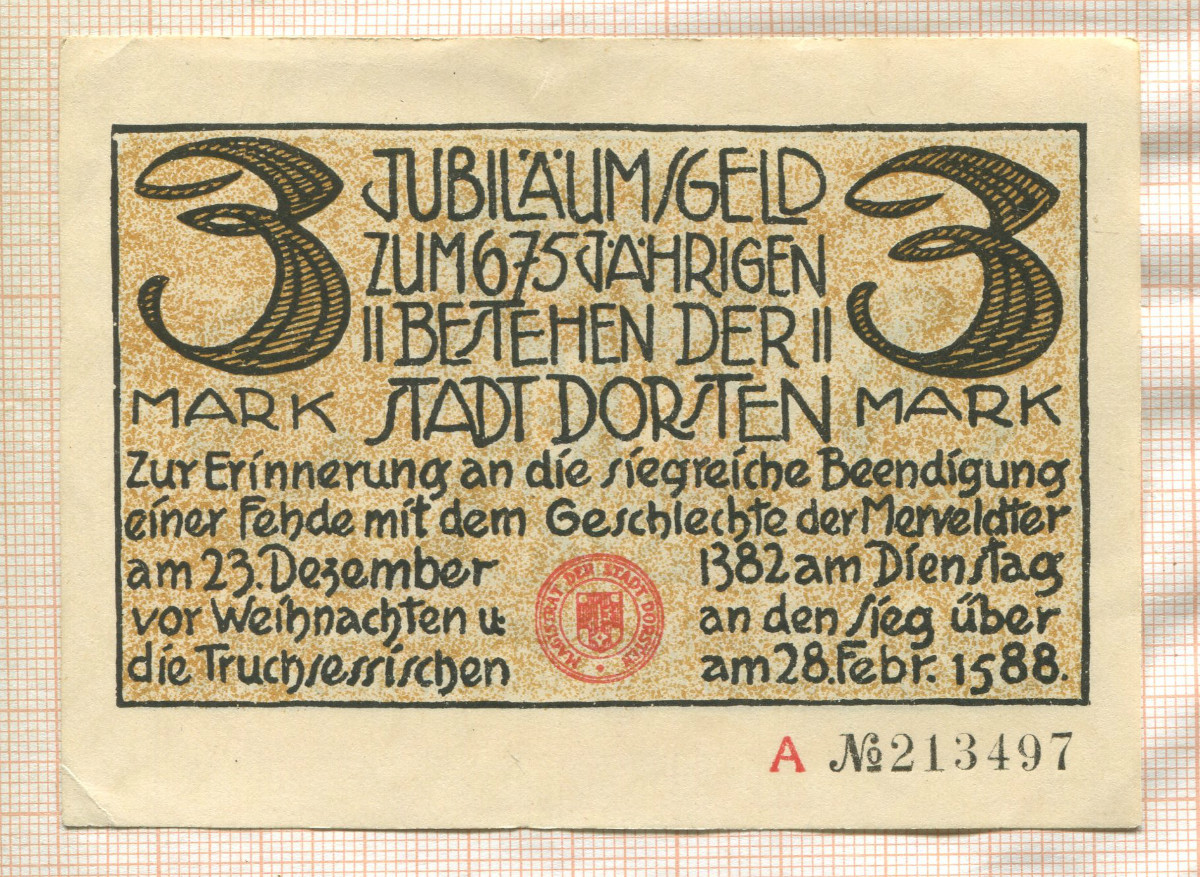 3 JUBILÄUMSGELD 3
ZUM 675 JÄHRIGEN
BESTEHEN DER
MARK STADT DORSTEN MARK
Zur Erinnerung an die siegreiche Beendigung
einer Fehde mit dem Geschlechte der Merveldter
am 23. Dezember 1382 am Dienstag
vor Weihnachten u: an den Sieg über
die Truchsessischen am 28. Febr. 1588.
MAGISTRAT DER STADT DORSTEN
A № 213497